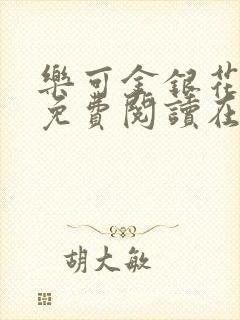 樂可金銀花
免費閱讀在
胡大敏